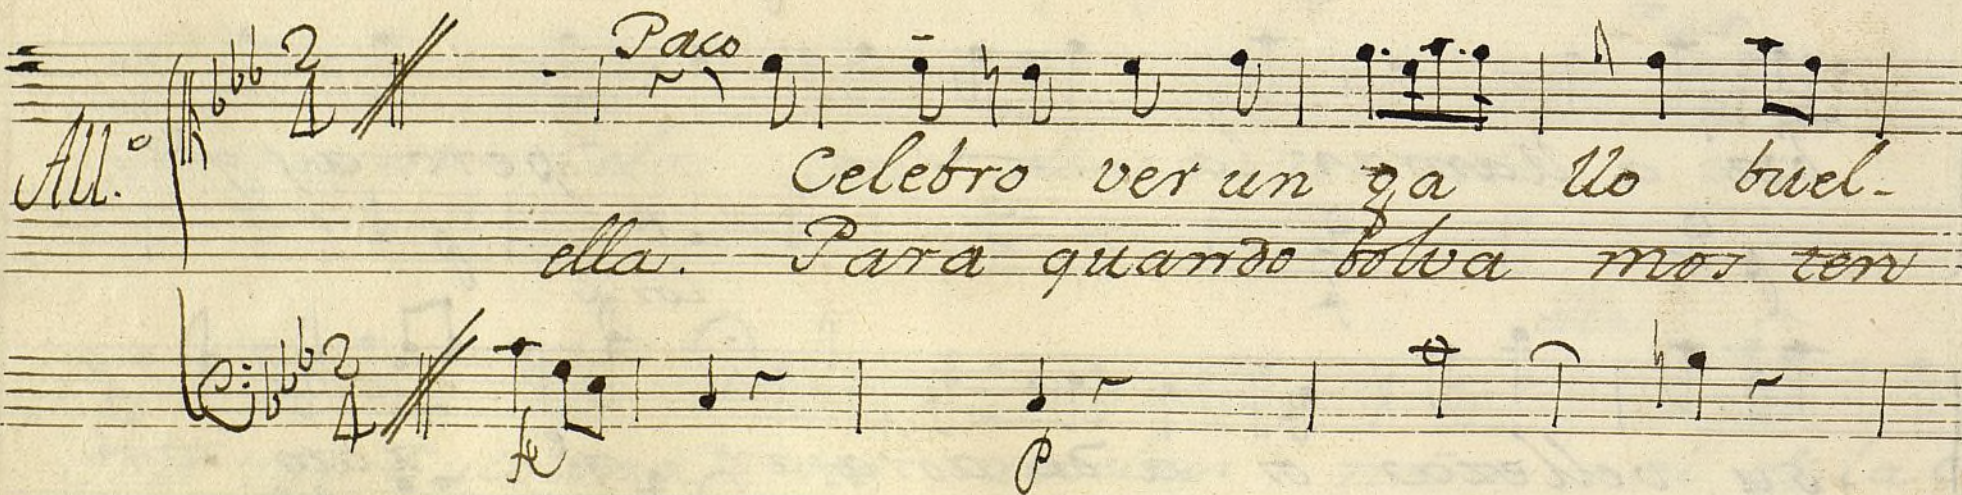 Paco
All.º
Celebro ver un ga llo buel-
ella. Para quando bolva mos ten
P